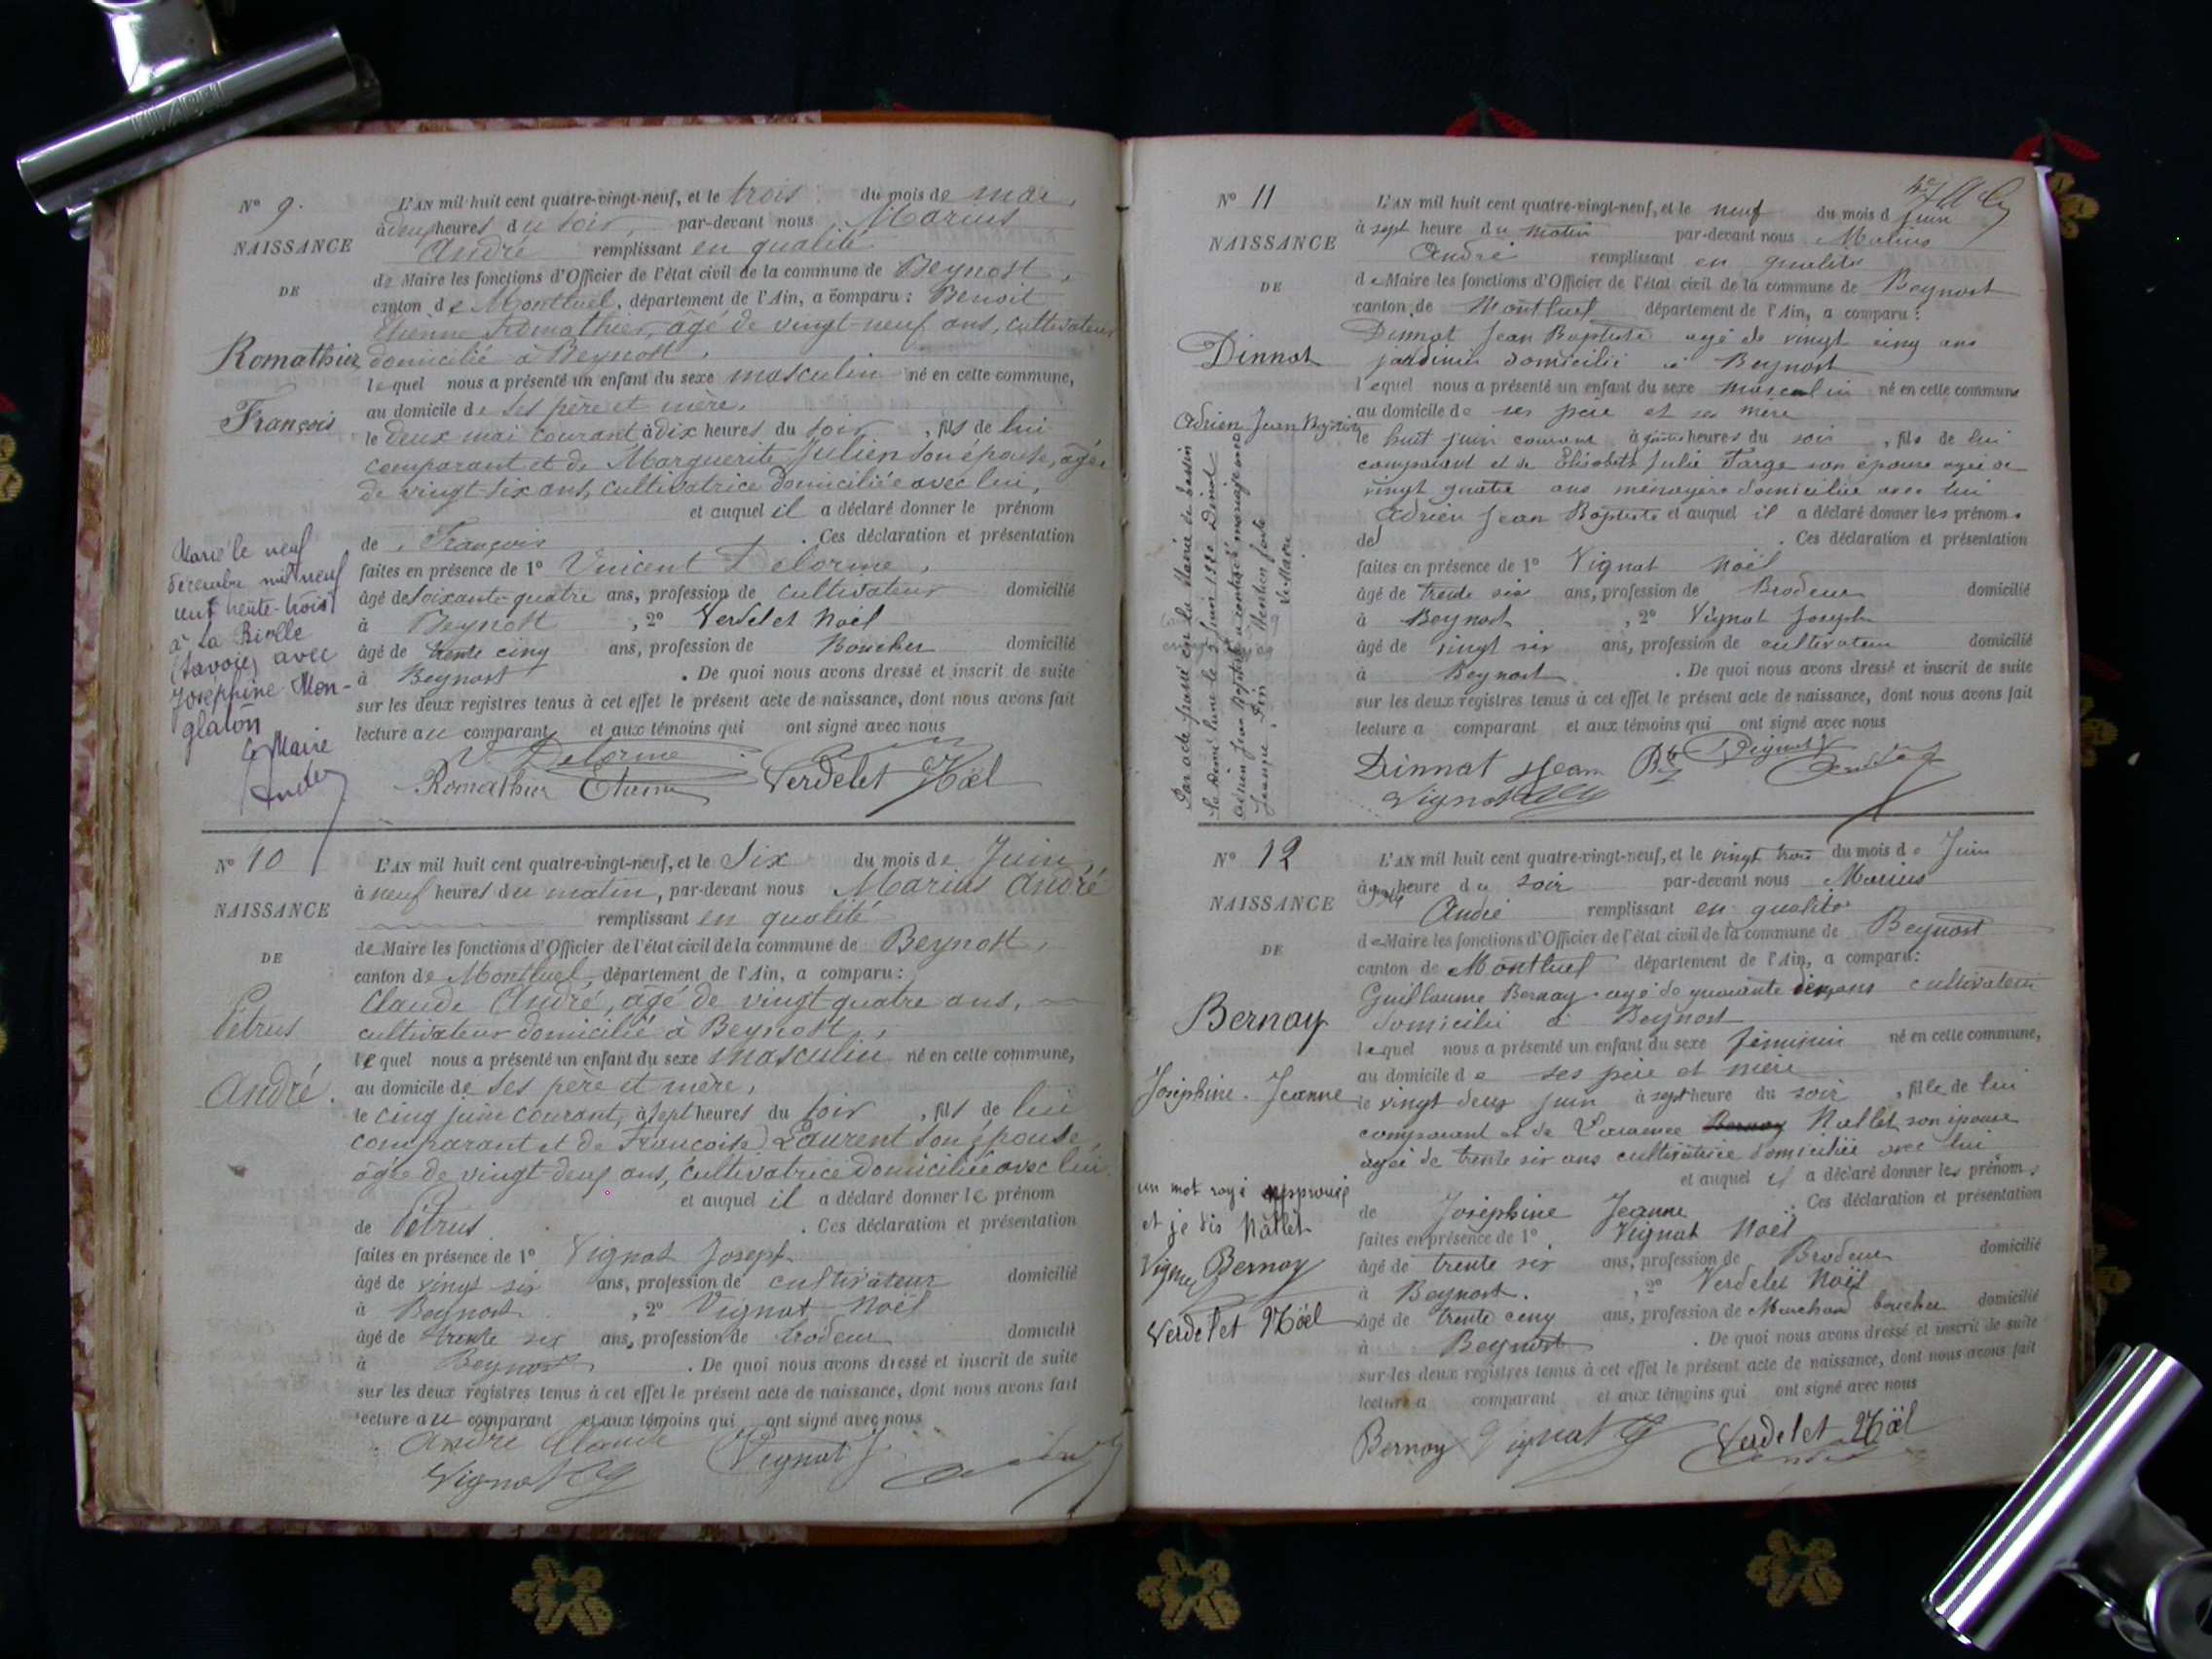 N° 9.
NAISSANCE
DE
Romathier
François
L'AN mil huit cent quatre-vingt-neuf, et le trois du mois de mai,
à deux heures du soir, par-devant nous Marius
André remplissant en qualité
de Maire les fonctions d'Officier de l'état civil de la commune de Beynost,
canton de Montluel, département de l'Ain, a comparu : Benoit
Etienne Romathier, âgé de vingt-neuf ans, cultivateur
domicilié à Beynost,
lequel nous a présenté un enfant du sexe masculin né en cette commune,
au domicile de ses père et mère,
le deux mai courant à dix heures du soir, fils de lui
comparant et de Marguerite Julien son épouse, âgée
de vingt-six ans, cultivatrice domiciliée avec lui,
et auquel il a déclaré donner le prénom
de François . Ces déclaration et présentation
faites en présence de 1° Vincent Delorme,
âgé de soixante-quatre ans, profession de cultivateur domicilié
à Beynost , 2° Verdelet Noël
âgé de trente cinq ans, profession de Boucher domicilié
à Beynost . De quoi nous avons dressé et inscrit de suite
sur les deux registres tenus à cet effet le présent acte de naissance, dont nous avons fait
lecture au comparant et aux témoins qui ont signé avec nous
V. Delorme
Romathier Etienne Verdelet Noël
Marié le neuf
décembre mil neuf
cent trente-trois
à La Biolle
(Savoie) avec
Joséphine Mon-
glaton
Le Maire
N° 10
NAISSANCE
DE
Pétrus
André.
L'AN mil huit cent quatre-vingt-neuf, et le Six du mois de Juin,
à neuf heures du matin, par-devant nous Marius André
remplissant en qualité
de Maire les fonctions d'Officier de l'état civil de la commune de Beynost,
canton de Montluel, département de l'Ain, a comparu :
Claude André, âgé de vingt quatre ans,
cultivateur domicilié à Beynost,
lequel nous a présenté un enfant du sexe masculin né en cette commune,
au domicile de ses père et mère,
le cinq juin courant, à sept heures du soir , fils de lui
comparant et de Françoise Laurent son épouse,
âgée de vingt-deux ans, cultivatrice domiciliée avec lui.
et auquel il a déclaré donner le prénom
de Pétrus . Ces déclaration et présentation
faites en présence de 1° Vignat Joseph
âgé de vingt six ans, profession de cultivateur domicilié
à Beynost , 2° Vignat Noël
âgé de trente six ans, profession de brodeur domicilié
à Beynost . De quoi nous avons dressé et inscrit de suite
sur les deux registres tenus à cet effet le présent acte de naissance, dont nous avons fait
lecture au comparant et aux témoins qui ont signé avec nous
André Claude Vignat J
Vignat
N° 11
NAISSANCE
DE
Dinnat
Adrien Jean Baptiste
L'AN mil huit cent quatre-vingt-neuf, et le neuf du mois d juin
à sept heure du matin par-devant nous Marius
André remplissant en qualité
de Maire les fonctions d'Officier de l'état civil de la commune de Beynost
canton de Montluel département de l'Ain, a comparu :
Dinnat Jean Baptiste agé de vingt cinq ans
jardinier domicilié à Beynost
lequel nous a présenté un enfant du sexe masculin né en cette commune
au domicile de ses père et sa mère
le huit juin courant à quatre heures du soir , fils de lui
comparant et de Elisabeth Julie Farge son épouse agée de
vingt quatre ans ménagère domiciliée avec lui
Adrien Jean Baptiste et auquel il a déclaré donner les prénoms
de . Ces déclaration et présentation
faites en présence de 1° Vignat Noël
âgé de trente six ans, profession de Brodeur domicilié
à Beynost , 2° Vignat Joseph
âgé de vingt six ans, profession de cultivateur domicilié
à Beynost . De quoi nous avons dressé et inscrit de suite
sur les deux registres tenus à cet effet le présent acte de naissance, dont nous avons fait
lecture a comparant et aux témoins qui ont signé avec nous
Dinnat Jean Bte Vignat
Vignat
N° 12
NAISSANCE
DE
Bernay
Joséphine. Jeanne
L'AN mil huit cent quatre-vingt-neuf, et le vingt trois du mois de Juin
à heure du soir par-devant nous Marius
André remplissant en qualité
de Maire les fonctions d'Officier de l'état civil de la commune de Beynost
canton de Montluel département de l'Ain, a comparu :
Guillaume Bernay agé de quarante ans cultivateur
domicilié à Beynost
lequel nous a présenté un enfant du sexe féminin né en cette commune,
au domicile de ses père et mère
le vingt deux juin à sept heure du soir , fille de lui
comparant et de Laurence Bernay Nallet son épouse
agée de trente six ans cultivatrice domiciliée avec lui
et auquel il a déclaré donner les prénoms
de Joséphine Jeanne . Ces déclaration et présentation
faites en présence de 1° Vignat Noël
âgé de trente six ans, profession de Brodeur domicilié
à Beynost. , 2° Verdelet Noël
âgé de trente cinq ans, profession de Marchand boucher domicilié
à Beynost . De quoi nous avons dressé et inscrit de suite
sur les deux registres tenus à cet effet le présent acte de naissance, dont nous avons fait
lecture a comparant et aux témoins qui ont signé avec nous
Bernay Vignat Verdelet Noël
un mot rayé approuvé
et je dis Nallet
Bernay
Verdelet Noël